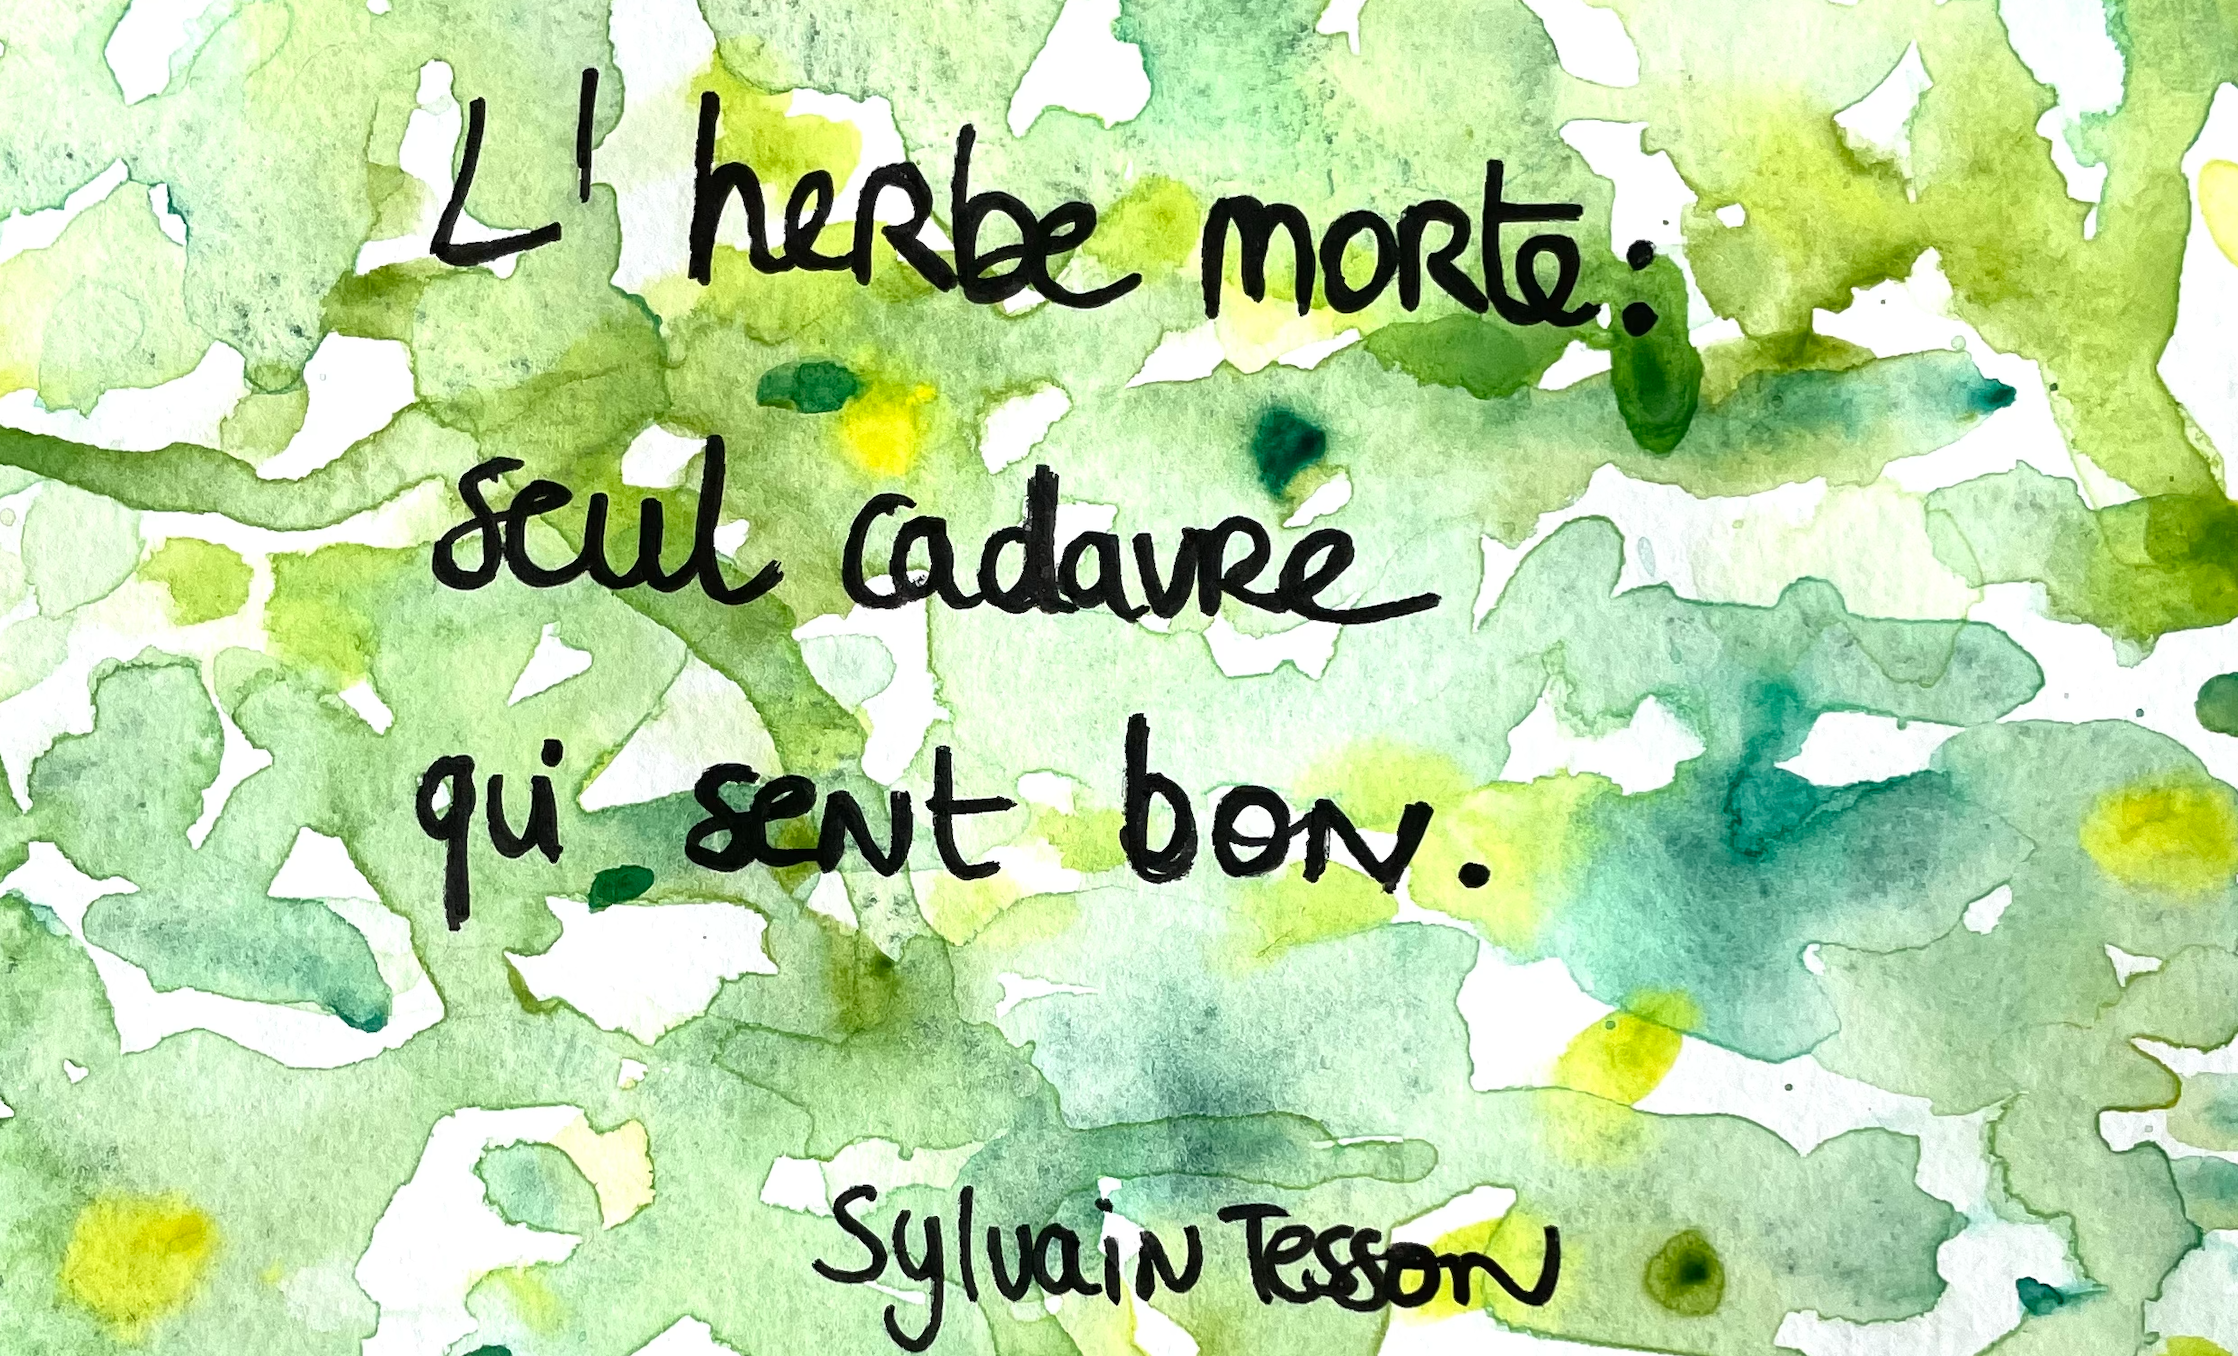 L'herbe morte :
seul cadavre
qui sent bon.
Sylvain Tesson